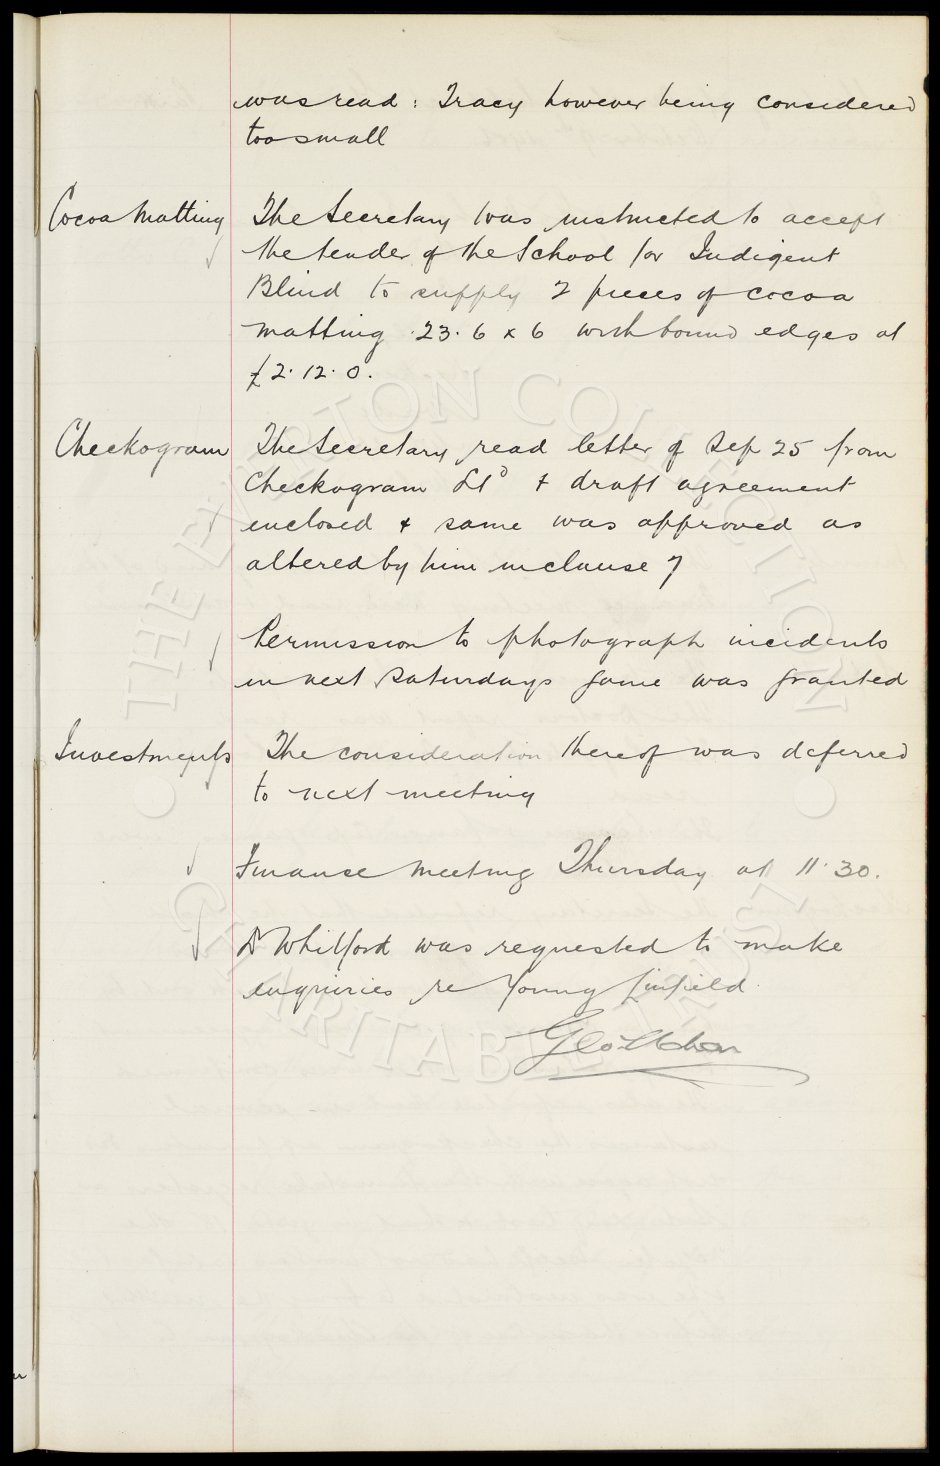 was read : Tracy however being considered
too small
Cocoa Matting
The Secretary was instructed to accept
the tender of the School for Indigent
Blind to supply 2 pieces of cocoa
matting 23.6 x 6 with bound edges at
£2.12.0.
Checkogram
The Secretary read letter of Sep 25 from
Checkogram Ltd & draft agreement
enclosed & same was approved as
altered by him in clause 7
Permission to photograph incidents
in next Saturdays game was granted
Investments
The consideration thereof was deferred
to next meeting
Finance Meeting Thursday at 11.30.
Dr Whitford was requested to make
enquiries re Young Linfield.
Geo Mahon
THE EVERTON COLLECTION
CHARITABLE TRUST